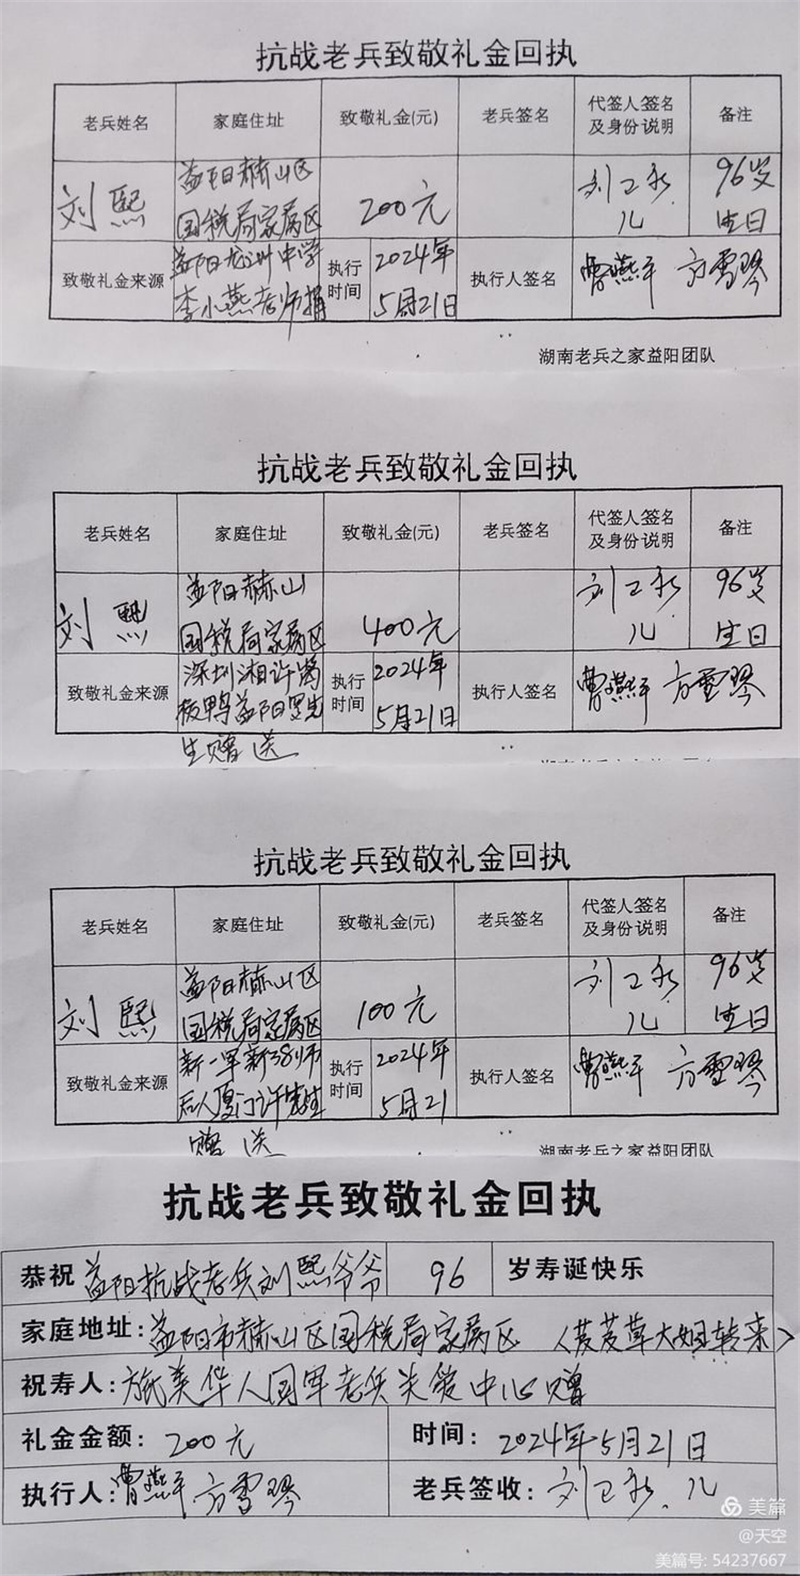 抗战老兵致敬礼金回执
老兵姓名 家庭住址 致敬礼金(元) 老兵签名 代签人签名及身份说明 备注
刘熙 益阳赫山区国税局家属区 200元 刘卫永 儿 96岁生日
致敬礼金来源 益阳龙洲中学李小燕老师捐 执行时间 2024年5月21日 执行人签名 曹燕平 方雪琴
湖南老兵之家益阳团队
抗战老兵致敬礼金回执
老兵姓名 家庭住址 致敬礼金(元) 老兵签名 代签人签名及身份说明 备注
刘熙 益阳赫山国税局家属区 400元 刘卫永 儿 96岁生日
致敬礼金来源 深圳湘许湾板鸭益阳罗先生赠送 执行时间 2024年5月21日 执行人签名 曹燕平 方雪琴
抗战老兵致敬礼金回执
老兵姓名 家庭住址 致敬礼金(元) 老兵签名 代签人签名及身份说明 备注
刘熙 益阳赫山区国税局家属区 100元 刘卫永 儿 96岁生日
致敬礼金来源 新一军新38师后人厦门许先生赠送 执行时间 2024年5月21 执行人签名 曹燕平 方雪琴
湖南老兵之家益阳团队
抗战老兵致敬礼金回执
恭祝 益阳抗战老兵刘熙爷爷 96 岁寿诞快乐
家庭地址: 益阳市赫山区国税局家属区 (芨芨草大姐转来)
祝寿人: 旅美华人国军老兵关爱中心赠
礼金金额: 200元 时间: 2024年5月21日
执行人: 曹燕平 方雪琴 老兵签收: 刘卫永 儿
美篇
@天空
美篇号: 54237667